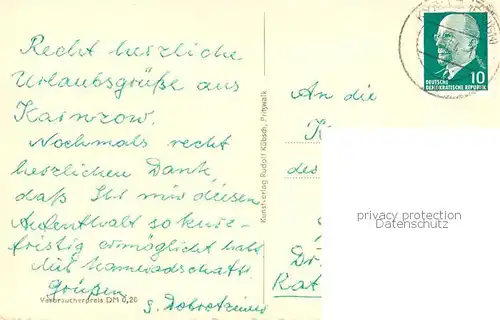 Recht herzliche
Urlaubsgrüße aus
Karnzow.
Nochmals recht
herzlichen Dank,
daß Ihr mir diesen
Aufenthalt so kurz-
fristig ermöglicht habt.
Mit kameradschaftl.
Grüßen
Verbraucherpreis DM 0,20
Kunstverlag Rudolf Kübsch, Pritzwalk
10
DEUTSCHE
DEMOKRATISCHE REPUBLIK
An die
K
des
Dr
Kat
privacy protection
Datenschutz